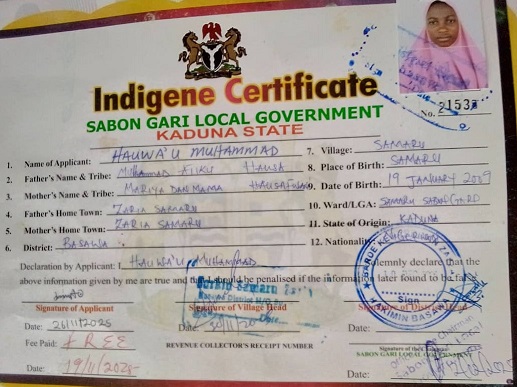 Indigene Certificate
SABON GARI LOCAL GOVERNMENT
KADUNA STATE
No. 21537
1. Name of Applicant: HAUWA'U MUHAMMAD
2. Father's Name & Tribe: ALIKU HAUSA
3. Mother's Name & Tribe: MARIYA DAN MAMA
4. Father's Home Town: ZARIA SAMARU
5. Mother's Home Town: ZARIA SAMARU
6. District: BASAWA
7. Village: SAMARU
8. Place of Birth: SAMARU
9. Date of Birth: 19 JANUARY 2009
10. Ward/LGA: SAMARU SABON GARI
11. State of Origin: KADUNA
12. Nationality:
Declaration by Applicant: I HAUWA'U MUHAMMAD solemnly declare that the
above information given by me are true and that I should be penalised if the information later found to be false.
Signature of Applicant
Signature of Village Head
Signature of District Head
HAKIMIN BASAWA
Sign
Date: 26/11/2025
Date: 30/11/20
Date:
Fee Paid: FREE
REVENUE COLLECTOR'S RECEIPT NUMBER
SABON GARI LOCAL GOVERNMENT
Date: 19/11/2025
Date: